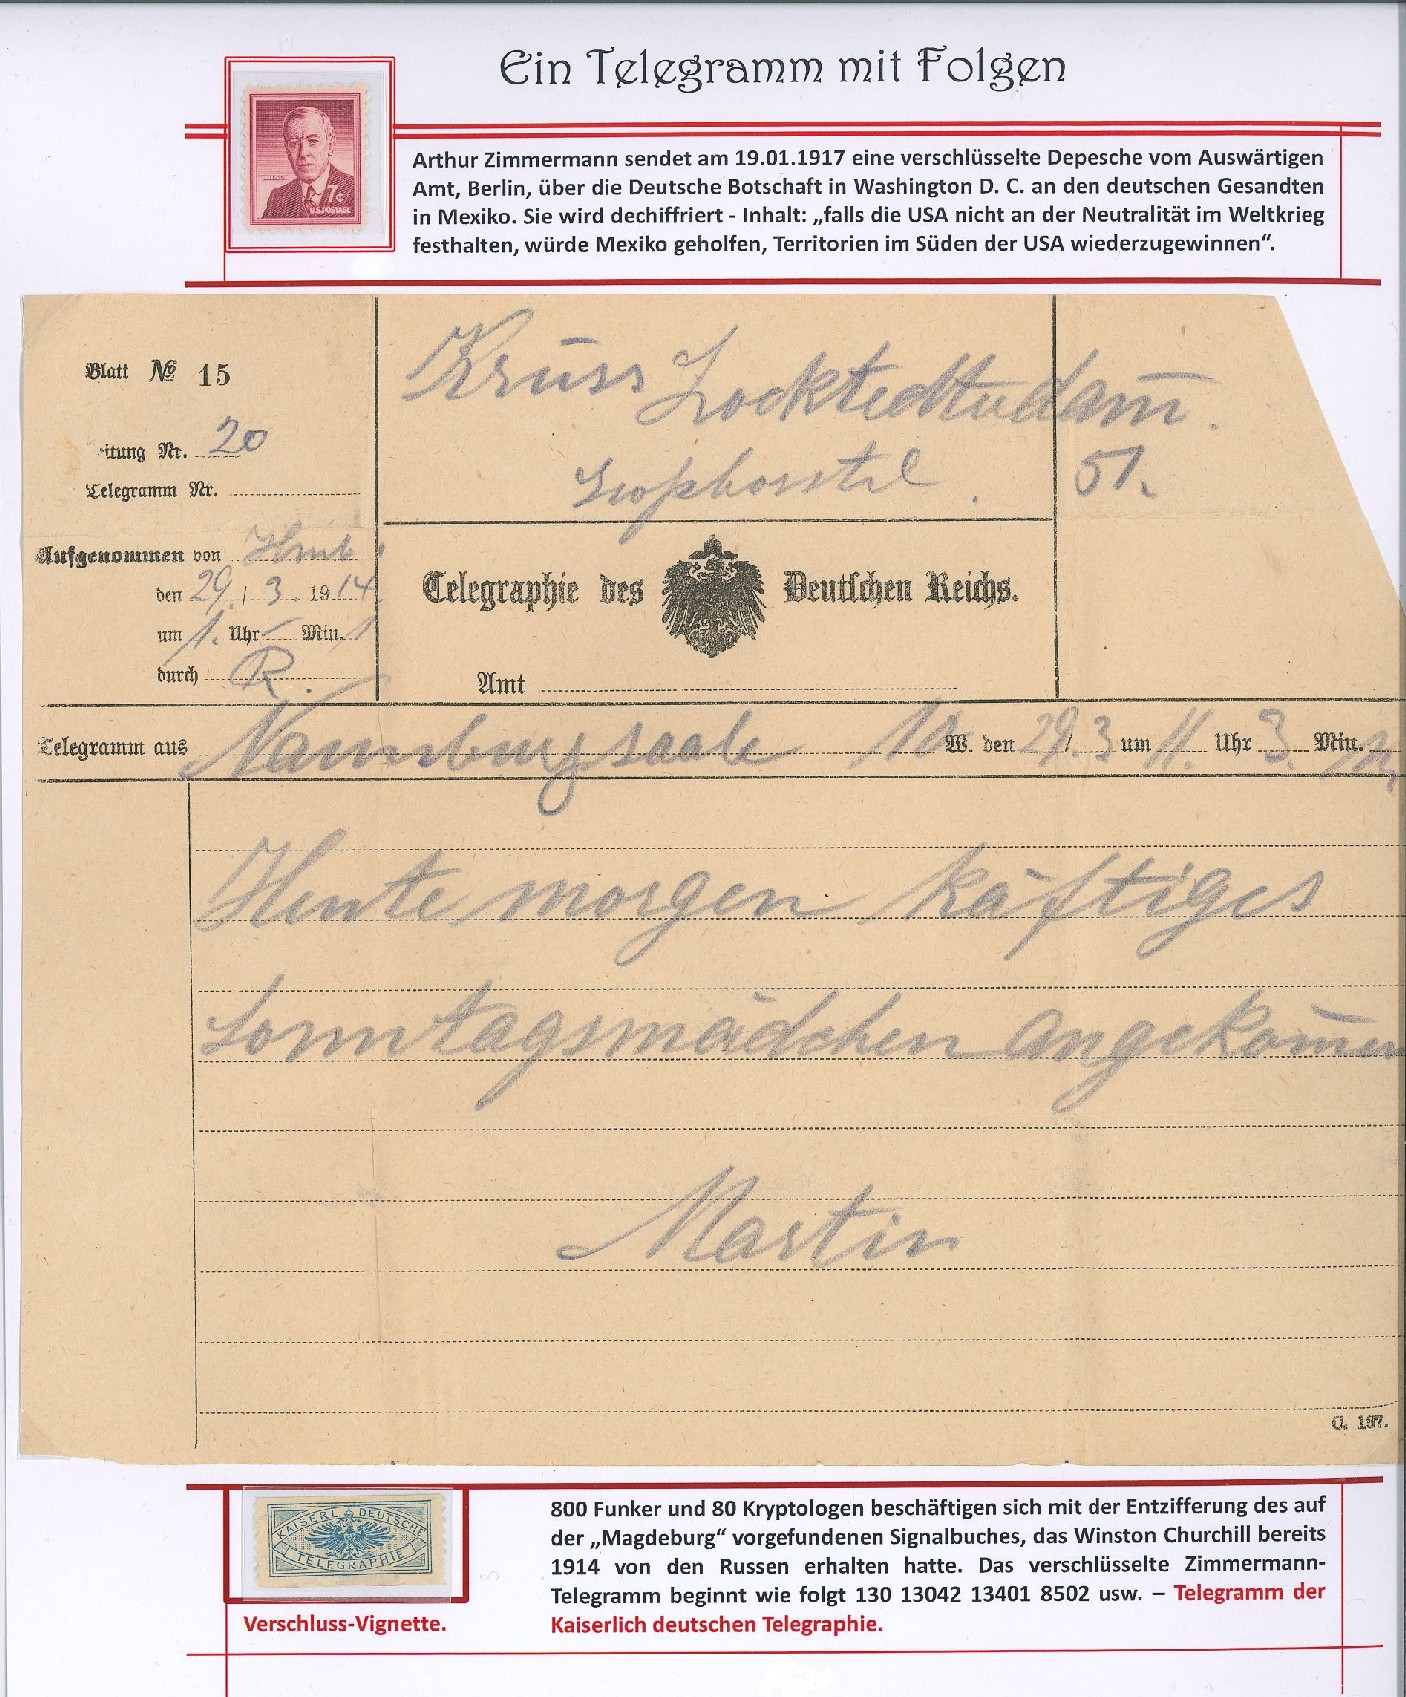 Ein Telegramm mit Folgen
7¢
U.S. POSTAGE
Arthur Zimmermann sendet am 19.01.1917 eine verschlüsselte Depesche vom Auswärtigen
Amt, Berlin, über die Deutsche Botschaft in Washington D. C. an den deutschen Gesandten
in Mexiko. Sie wird dechiffriert - Inhalt: „falls die USA nicht an der Neutralität im Weltkrieg
festhalten, würde Mexiko geholfen, Territorien im Süden der USA wiederzugewinnen“.
Blatt № 15
itung Nr. 20
Telegramm Nr.
Aufgenommen von Hmb
den 29. / 3. 1914
um 1. Uhr Min.
durch R.
Krüss
51.
Telegraphie des Deutschen Reichs.
Amt
Telegramm aus Naumburg saale 10 W. den 29. / 3 um 11. Uhr 3. Min.
Heute morgen käftiges
Sonntagsmädchen angekom̄en
Martin
C. 187.
KAISERL. DEUTSCHE
TELEGRAPHIE
Verschluss-Vignette.
800 Funker und 80 Kryptologen beschäftigen sich mit der Entzifferung des auf
der „Magdeburg“ vorgefundenen Signalbuches, das Winston Churchill bereits
1914 von den Russen erhalten hatte. Das verschlüsselte Zimmermann-
Telegramm beginnt wie folgt 130 13042 13401 8502 usw. – Telegramm der
Kaiserlich deutschen Telegraphie.